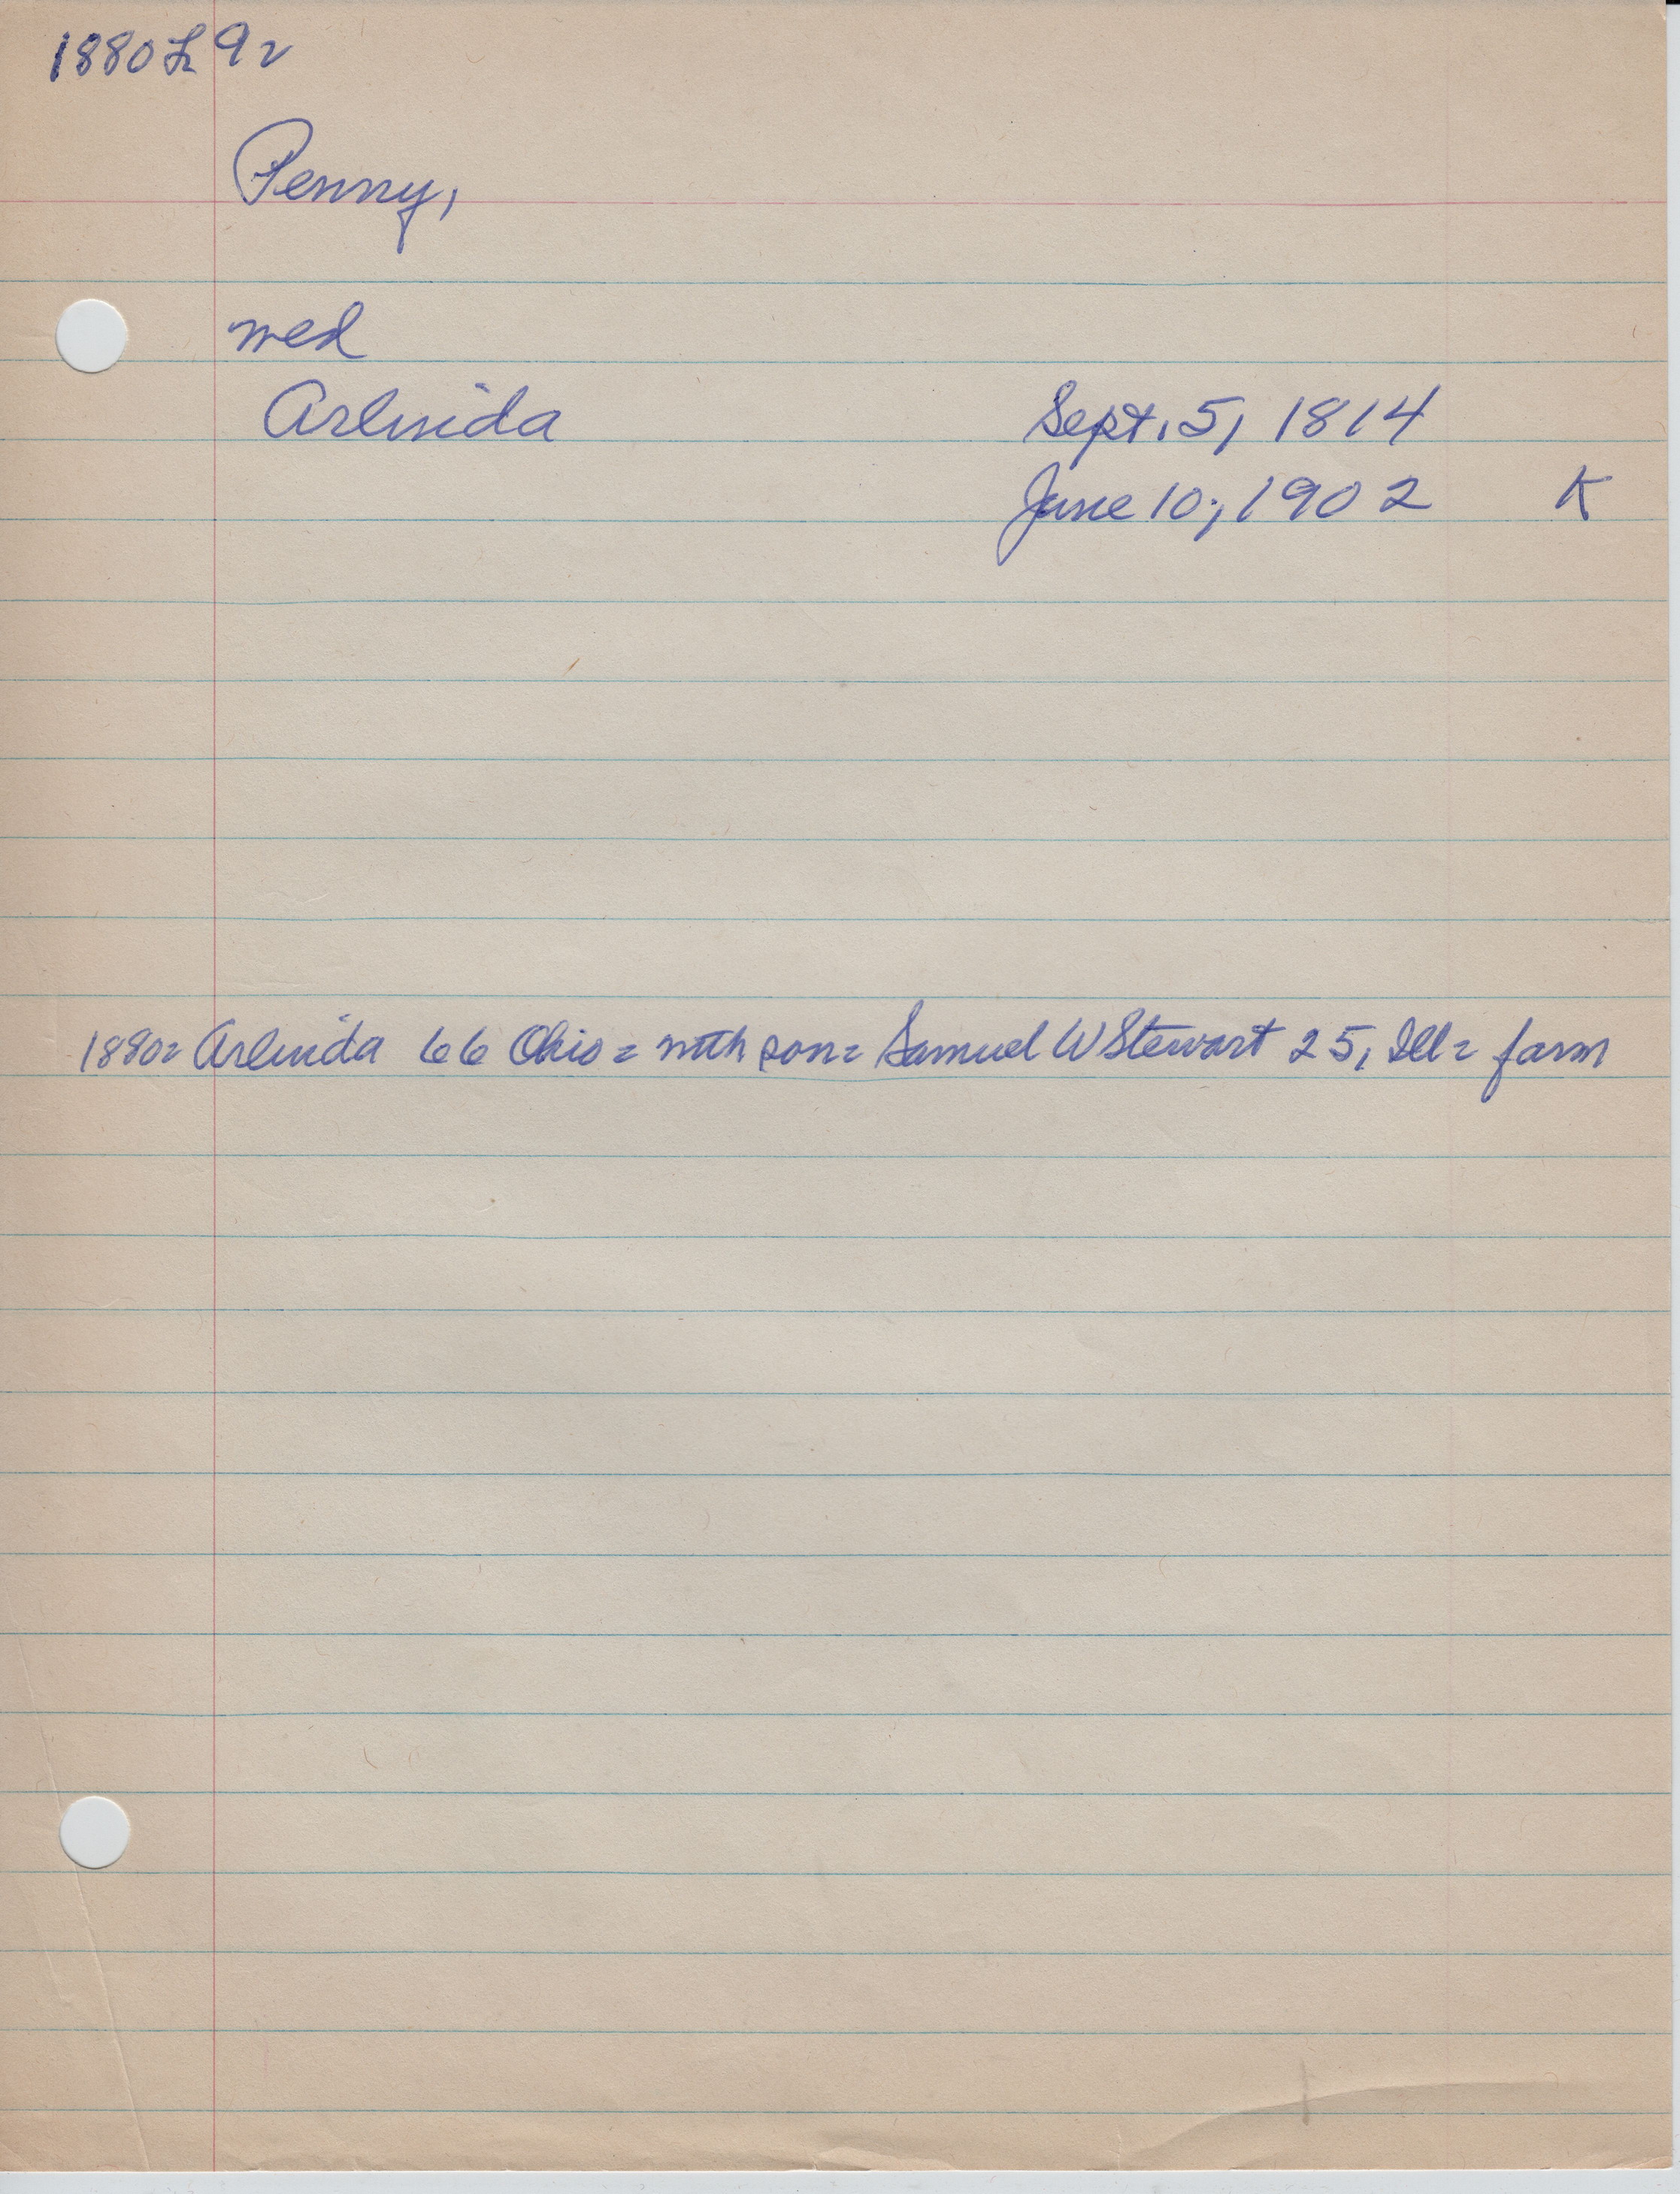 1880 L 92
Penny,
wed
Arlinida Sept. 5, 1814
June 10, 1902 K
1880= Arlinida 66 Ohio = with son = Samuel W Stewart 25, Ill = farm